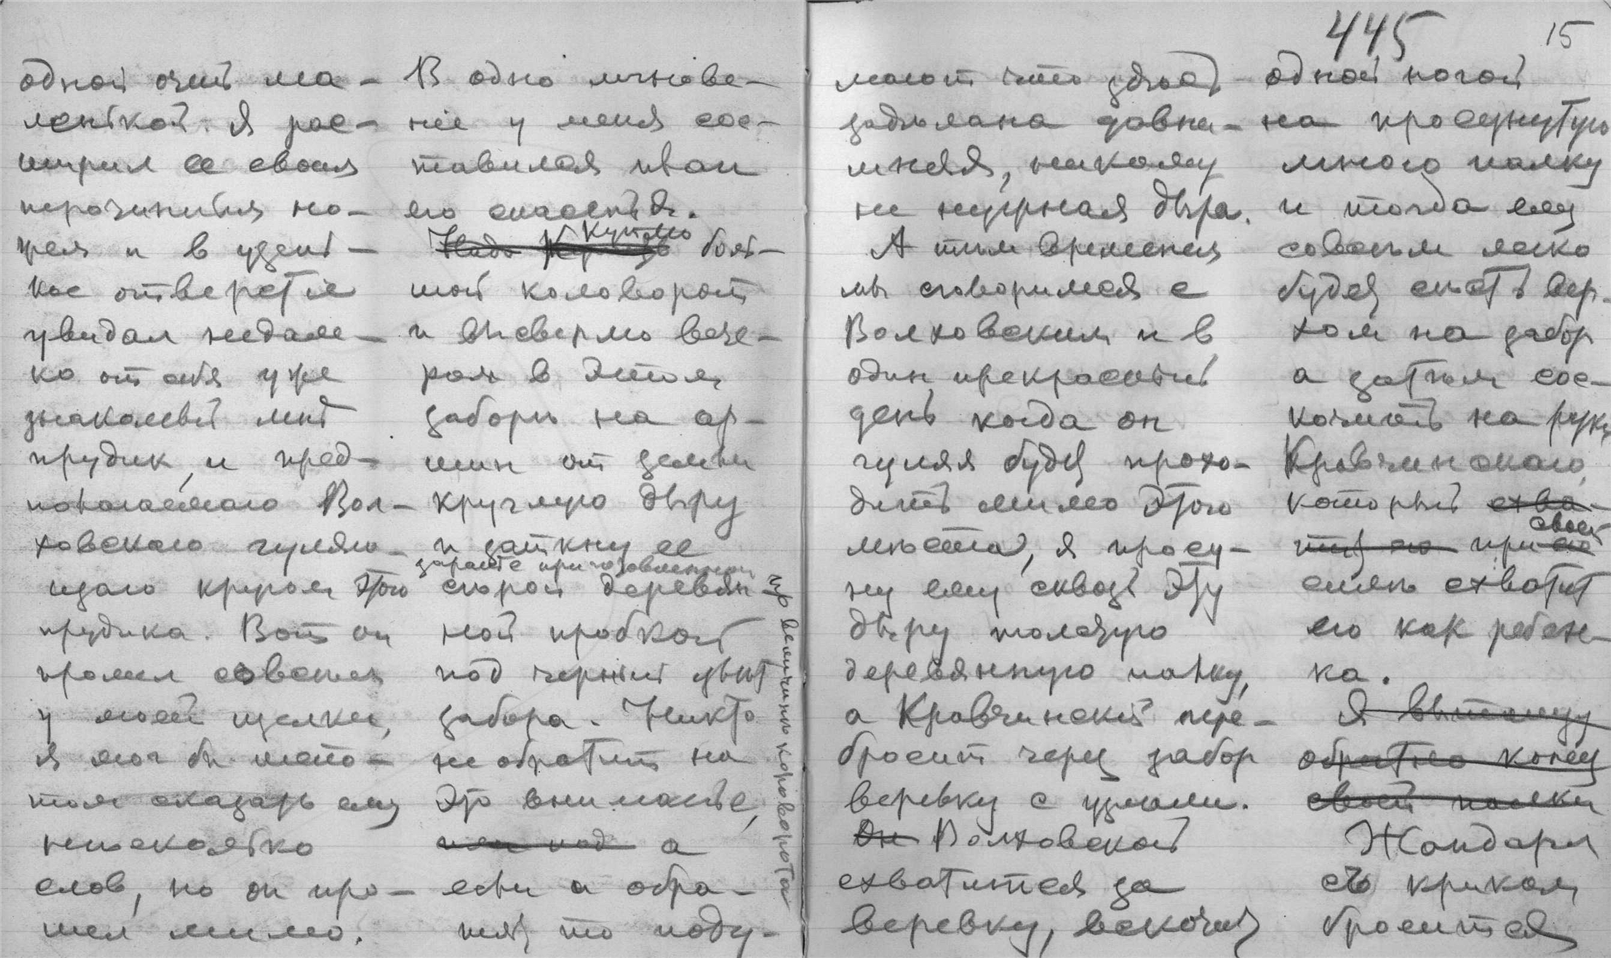 одной очень ма-
ленькой. Я рас-
ширил ее своим
перочинным но-
жем и в узень-
кое отверстіе
увидал недале-
ко от себя уже
знакомый мнѣ
прудик, и пред-
полагаемаго Вол-
ховскаго гуляю-
щаго кругом этого
прудика. Вот он
прошел совсем
у моей щелки,
я мог бы шепо-
том сказать ему
нѣсколько
слов, но он про-
шел мимо.
В одно мгнове-
ніе у меня сос-
тавился план
его спасенья.
Надо Куплю боль-
шой коловорот
и высверлю вече-
ром в этом
заборѣ на ар-
шин от земли
круглую дыру
и заткну ее
заранѣе приготовленной
скорой деревян-
ной пробкой
под черный цвѣт
забора. Никто
не обратит на
это вниманье,
а
если и обра-
тит, то поду-
в величину коловорота
445
15
мает что здѣсь
задѣлана давни-
шняя, никому
не нужная дыра.
А тѣм временем
мы сговоримся с
Волховским и в
один прекрасный
день когда он
гуляя будет прохо-
дить мимо этого
мѣста, я просу-
ну ему сквозь эту
дыру толстую
деревянную палку,
а Кравчинскій пере-
бросит через забор
веревку с узлами.
Он Волховской
схватится за
веревку, вскочит
одной ногой
на просунутую
мною палку
и тогда ему
совсѣм легко
будет сѣсть вер-
хом на забор
а затѣм сос-
кочить на руки
Кравчинскаго,
который схва-
тит его при его
своей
силѣ схватит
его как ребен-
ка.
Я вытащу
обратно конец
своей палки
Жандарм
съ криком
бросится